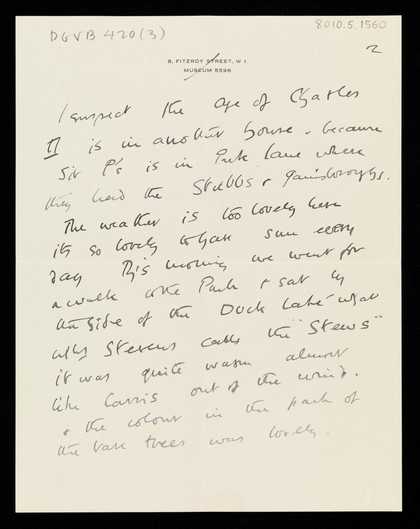 DGVB 420 (3)
8010.5.1560
2
8, FITZROY STREET, W 1.
MUSEUM 5596
I suspect the age of Charles
II is in another house - because
Sir P's is in Park Lane where
they had the Stubbs & Gainsboroughs.
The weather is too lovely here
its so lovely to have sun every
day This morning we went for
a walk to the Park & sat by
the side of the Duck Lake what
Stevens calls the "Stews"
it was quite warm almost
like Cassis out of the wind.
& the colour in the park of
the bare trees was lovely.